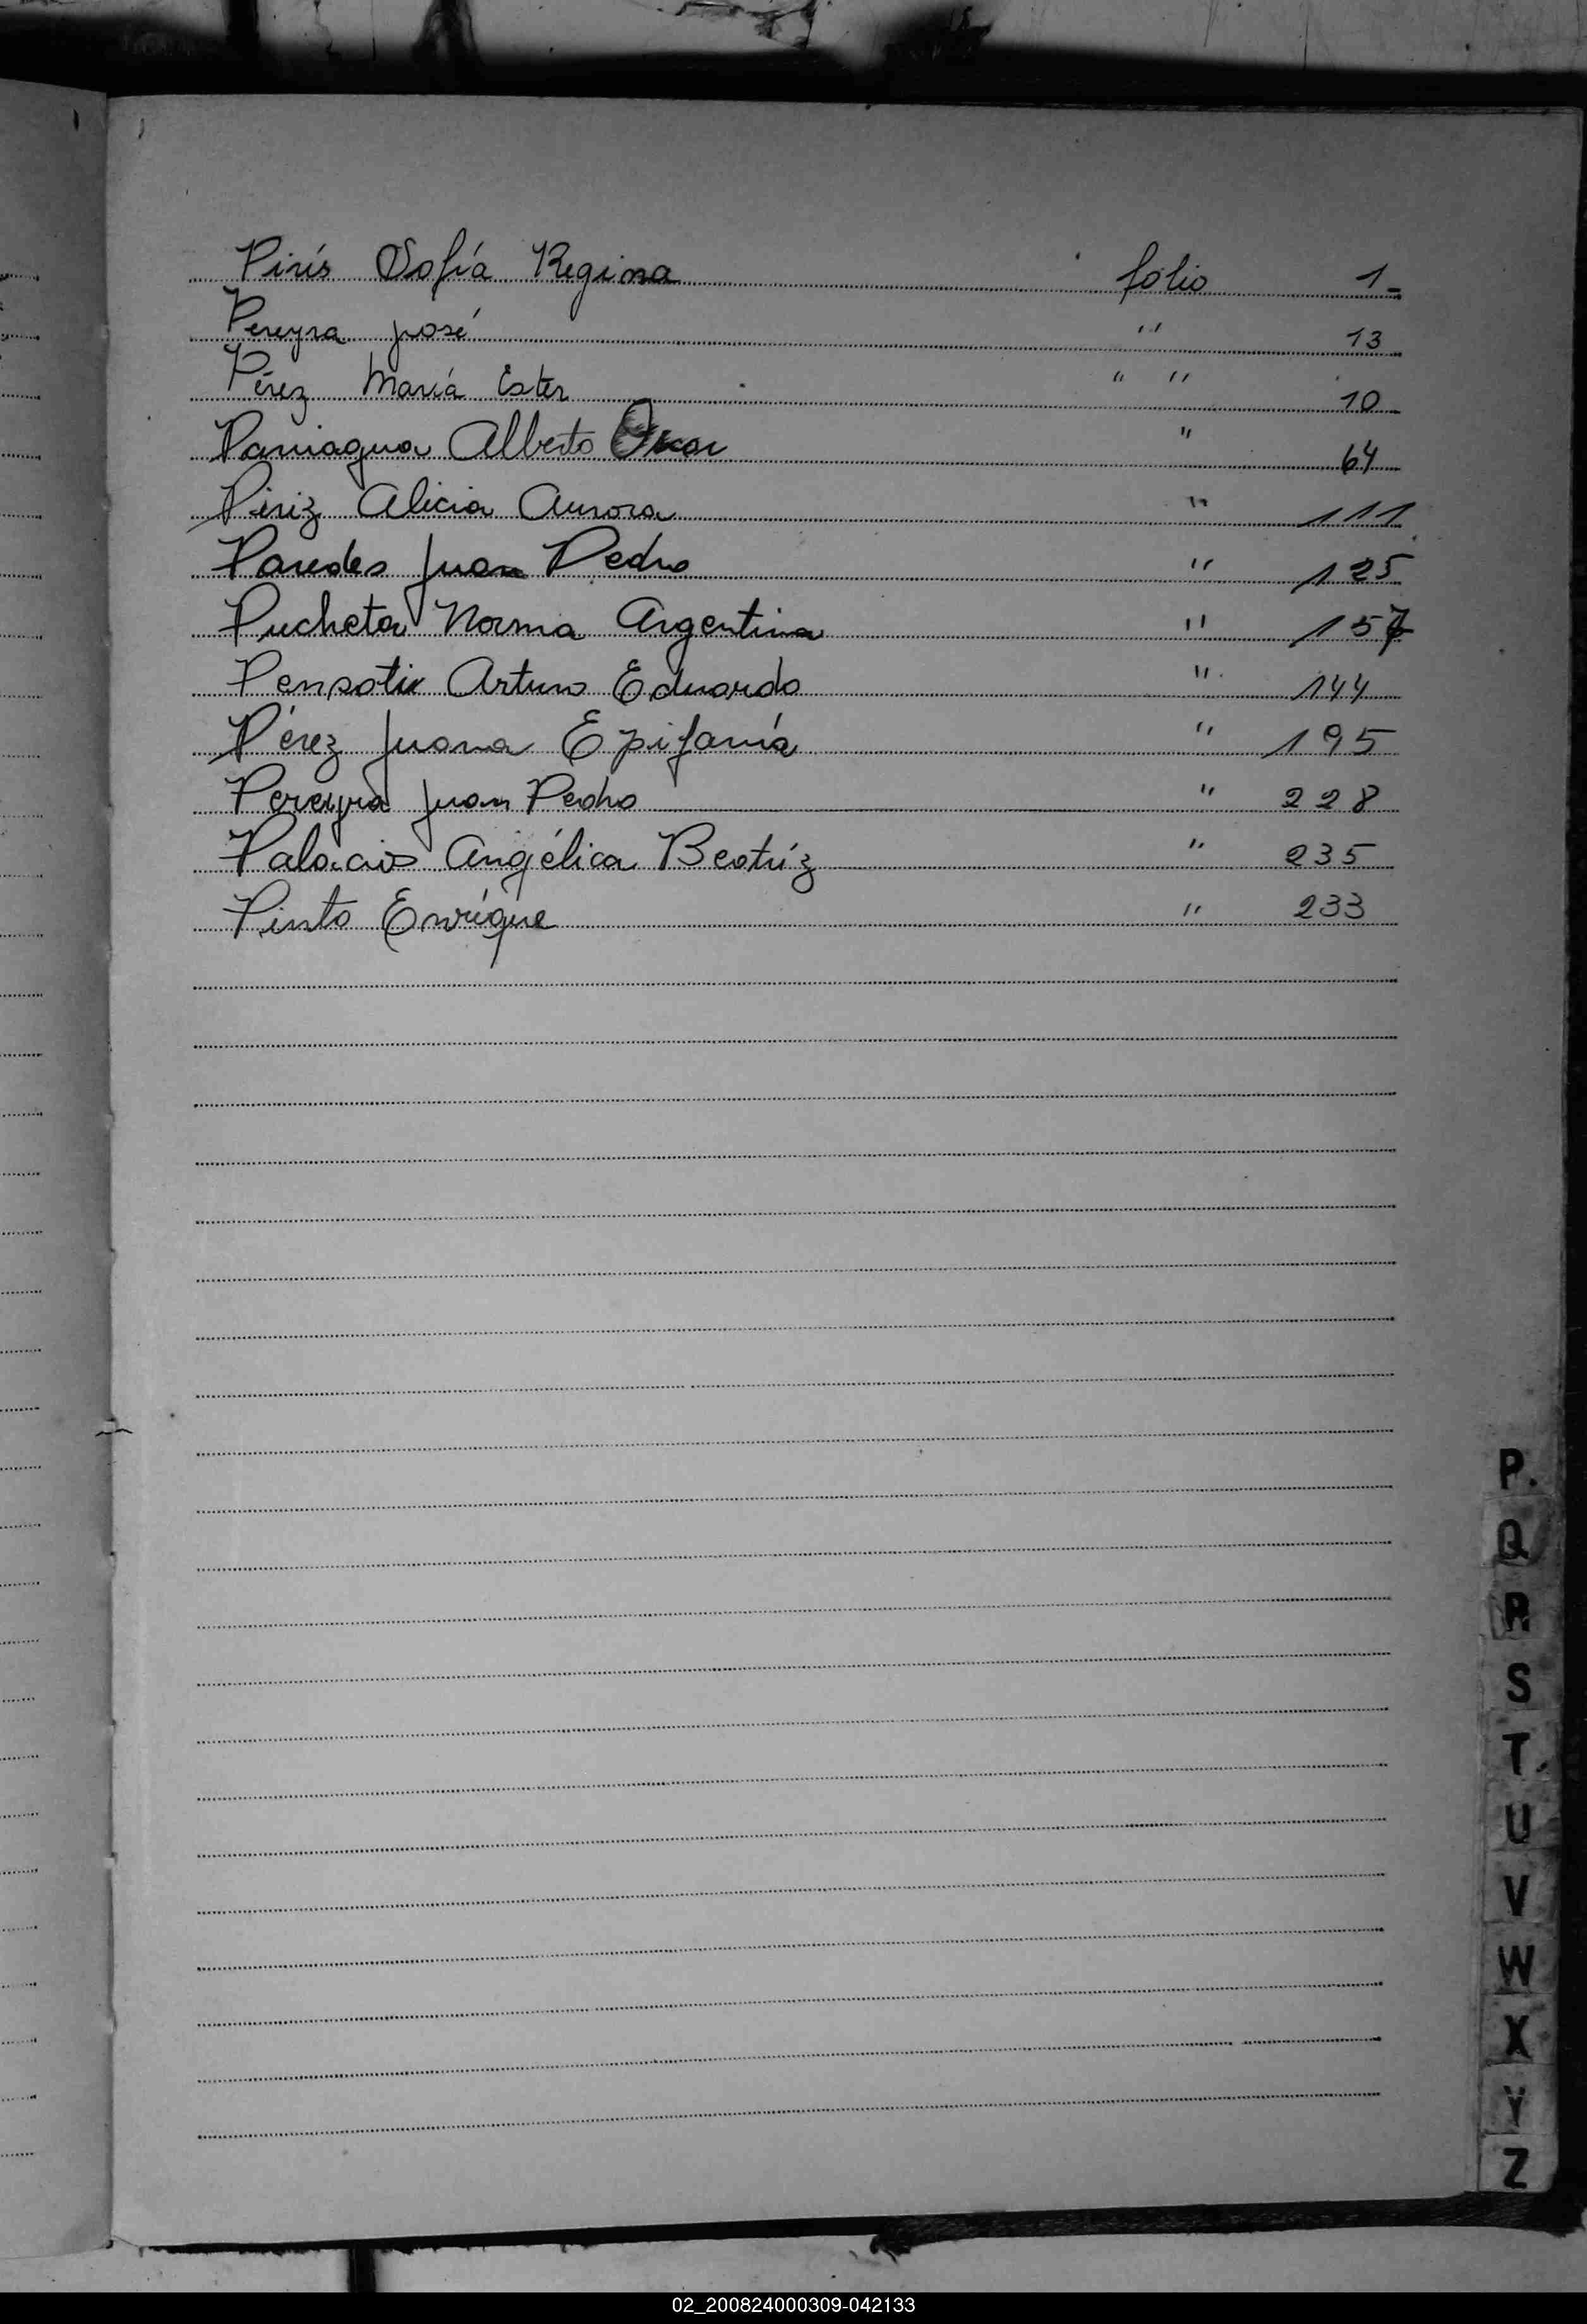 Pirís Sofía Regina fólio 1-
Pereyra José " 13
Pérez María Ester " " 10
Paniagua Alberto Oscar " 64
Piriz Alicia Aurora " 111
Paredes Juan Pedro " 125
Pucheta Norma Argentina " 157
Pensoti Arturo Eduardo " 144
Pérez Juana Epifanía " 195
Pereyra Juan Pedro " 228
Palacios Angélica Beatríz " 235
Pinto Enrique " 233
P.
Q
R
S
T
U
V
W
X
Y
Z
02_200824000309-042133